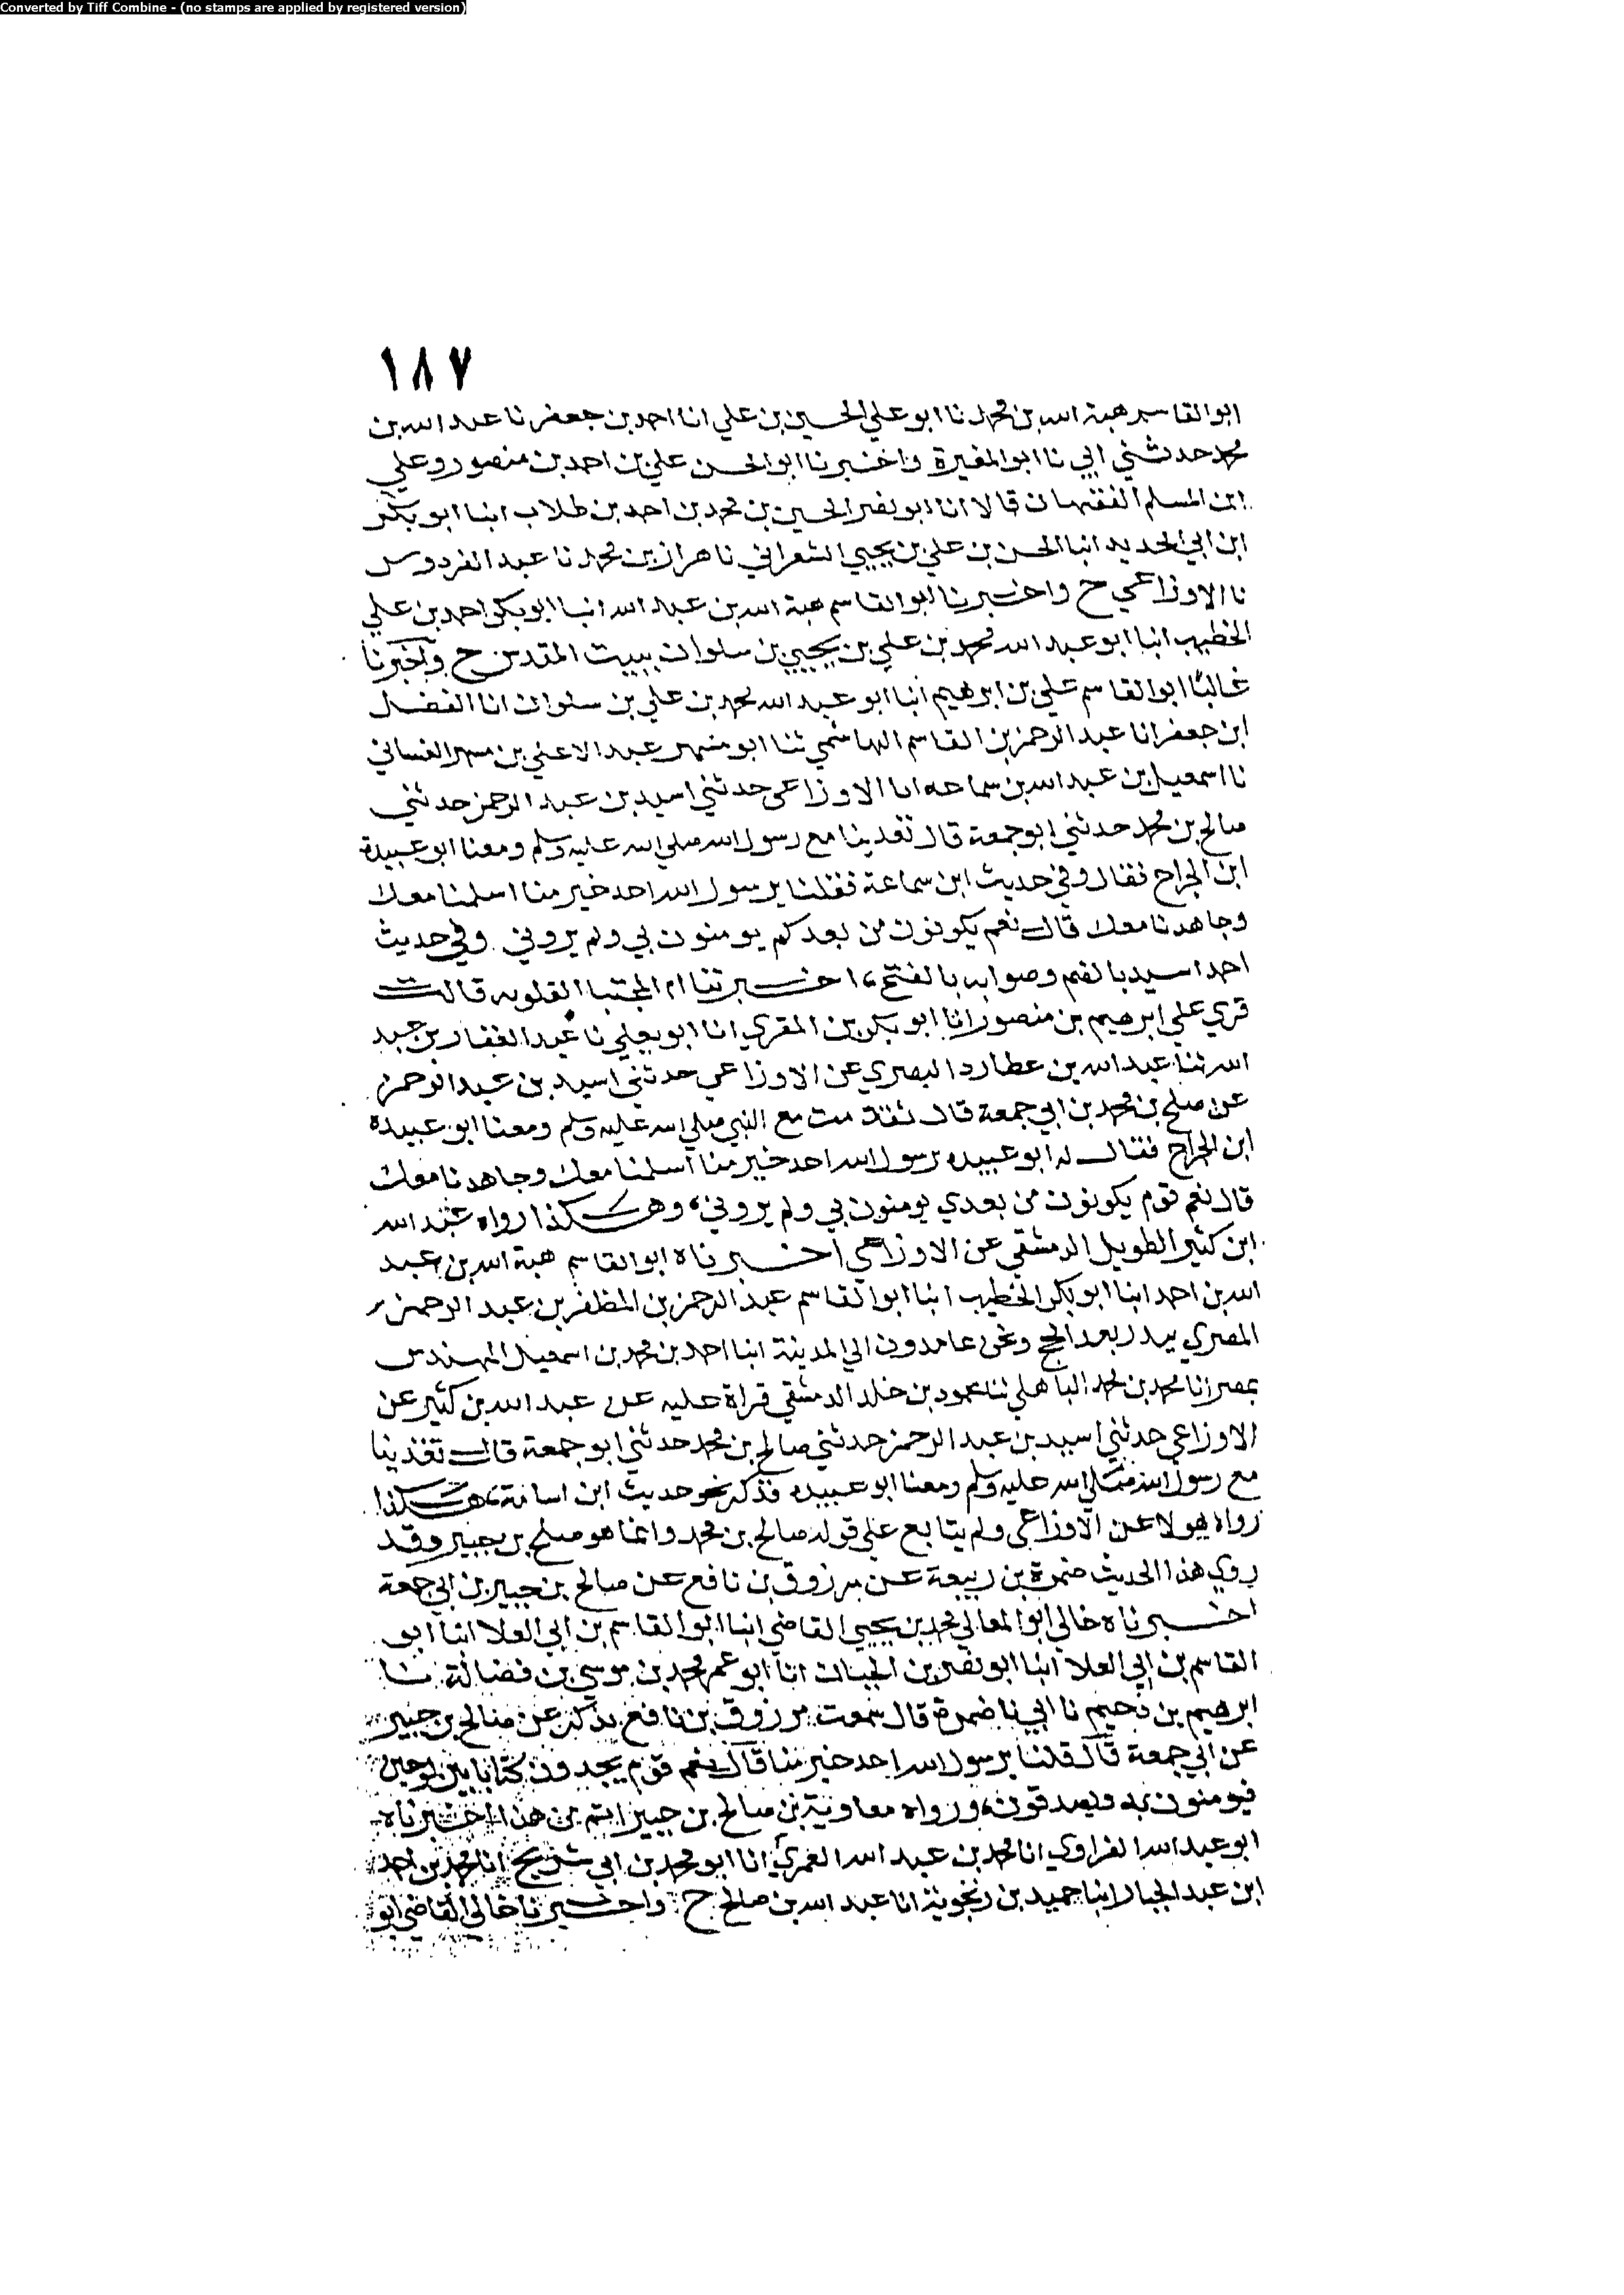 Converted by Tiff Combine - (no stamps are applied by registered version)
١٨٧
ابو القاسم هبة الله بن محمد نا ابو علي الحسين بن علي انا احمد بن جعفر نا عبد الله بن
محمد حدثني ابي نا ابو المغيرة واخبرنا ابو الحسن علي بن احمد بن منصور وعلي
ابن المسلم الفقيهان قالا انا ابو نصر الحسين بن محمد بن احمد بن طلاب ابنا ابو بكر
ابن ابي الحديد انبا الحسن بن علي بن يحيي الشعراني نا هران بن محمد نا عبد الفردوس
نا الاوزاعي ح واخبرنا ابو القاسم هبة الله بن عبد الله انبا ابو بكر احمد بن علي
الخطيب انبا ابو عبد الله محمد بن علي بن يحيي بن سلوان ببيت المقدس ح واخبرنا
غالبا ابو القاسم علي بن ابرهيم انبا ابو عبد الله محمد بن علي بن سلوان انا الفضل
ابن جعفر انا عبد الرحمن بن القاسم الهاشمي ثنا ابو مسهر عبد الاعلي بن مسهر الغساني
نا اسمعيل بن عبد الله بن سماحه انا الاوزاعي حدثني اسيد بن عبد الرحمن حدثني
صالح بن محمد حدثني ابو جمعة قال تغدينا مع رسول الله صلي الله عليه وسلم ومعنا ابو عبيدة
ابن الجراح فقال وفي حديث ابن سماعة فقلنا يرسول الله احد خير منا اسلمنا معك
وجاهدنا معك قال نعم يكونون من بعدكم يومنون بي ولم يروني وفي حديث
احمد اسيد بالضم وصوابه بالفتح، اخبرتنا ام المجتبا العلويه قالت
قري علي ابرهيم بن منصور انا ابو بكر بن المقري انا ابو يعلي نا عبد الغفار بن عبد
الله ثنا عبد الله بن عطارد البصري عن الاوزاعي حدثني اسيد بن عبد الرحمن
عن صلح بن محمد بن ابي جمعة قال تقدمت مع النبي صلي الله عليه وسلم ومعنا ابو عبيده
ابن الجراح فقال له ابو عبيده يرسول الله احد خير منا اسلمنا معك وجاهدنا معك
قال نعم قوم يكونون من بعدي يومنون بي ولم يروني، وهكذا رواه عبد الله
ابن كثير الطويل الدمشقي عن الاوزاعي اخبرناه ابو القاسم هبة الله بن عبد
الله بن احمد ابنا ابو بكر الخطيب انبا ابو القاسم عبد الرحمن بن المظفر بن عبد الرحمن
المصري ببدر بعد الحج ونحن عامدون الي المدينة انبا احمد بن محمد بن اسمعيل المهندس
بمصر انا محمد بن محمد الباهلي ثنا محمود بن خلد الدمشقي قراة عليه عن عبد الله بن كثير عن
الاوزاعي حدثني اسيد بن عبد الرحمن حدثني صالح بن محمد حدثني ابو جمعة قال تغذينا
مع رسول الله صلي الله عليه وسلم ومعنا ابو عبيده فذكر نحو حديث ابن اسامة، هكذا
رواه هولا عن الاوزاعي ولم يتابع علي قوله صالح بن محمد وانما هو صلح بن جبير وقد
روي هذا الحديث ضمرة بن ربيعة عن مرزوق بن نافع عن صالح بن جبير بن ابي جمعة
اخبرناه خالي ابو المعالي محمد بن يحيي القاضي انبا ابو القاسم بن ابي العلا انبا ابو
القاسم بن ابي العلا انبا ابو نصر بن الجبان انا ابو عمر محمد بن موسي بن فضالة نا
ابرهيم بن دحيم نا ابي نا ضمرة قال سمعت مرزوق بن نافع يذكر عن صالح بن جبير
عن ابي جمعة قال قلنا يرسول الله احد خير منا قال نعم قوم يجدون كتابا بين لوحين
فيومنون به ويصدقون، ورواه معاوية بن صالح بن جبير اتم من هذا اخبرناه
ابو عبد الله الفراوي انا محمد بن عبد الله العمري انا ابو محمد بن ابي شريح انا محمد بن احمد
ابن عبد الجبار انبا حميد بن زنجوية انا عبد الله بن صالح ح واخبرنا خالي القاضي ابو